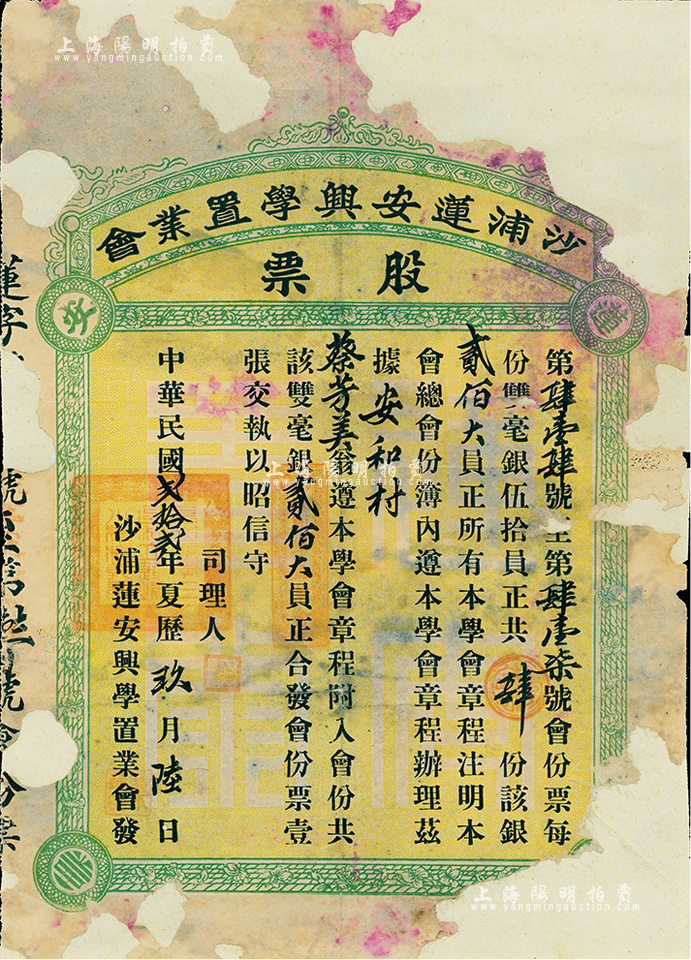 上海陽明拍賣
www.yangmingauction.com
沙浦蓮安興學置業會
股票
蓮
安
第肆壹肆號至第肆壹柒號會份票每
份雙毫銀伍拾員正共肆份該銀
貳佰大員正所有本學會章程注明本
會總會份簿內遵本學會章程辦理茲
據安和村
蔡芳美翁遵本學會章程附入會份共
該雙毫銀貳佰大員正合發會份票壹
張交執以昭信守
司理人
中華民國貳拾貳年夏歷玖月陸日
沙浦蓮安興學置業會發
蓮字
號至第
號會份票
上海陽明拍賣
www.yangmingauction.com
上海陽明拍賣
www.yangmingauction.com